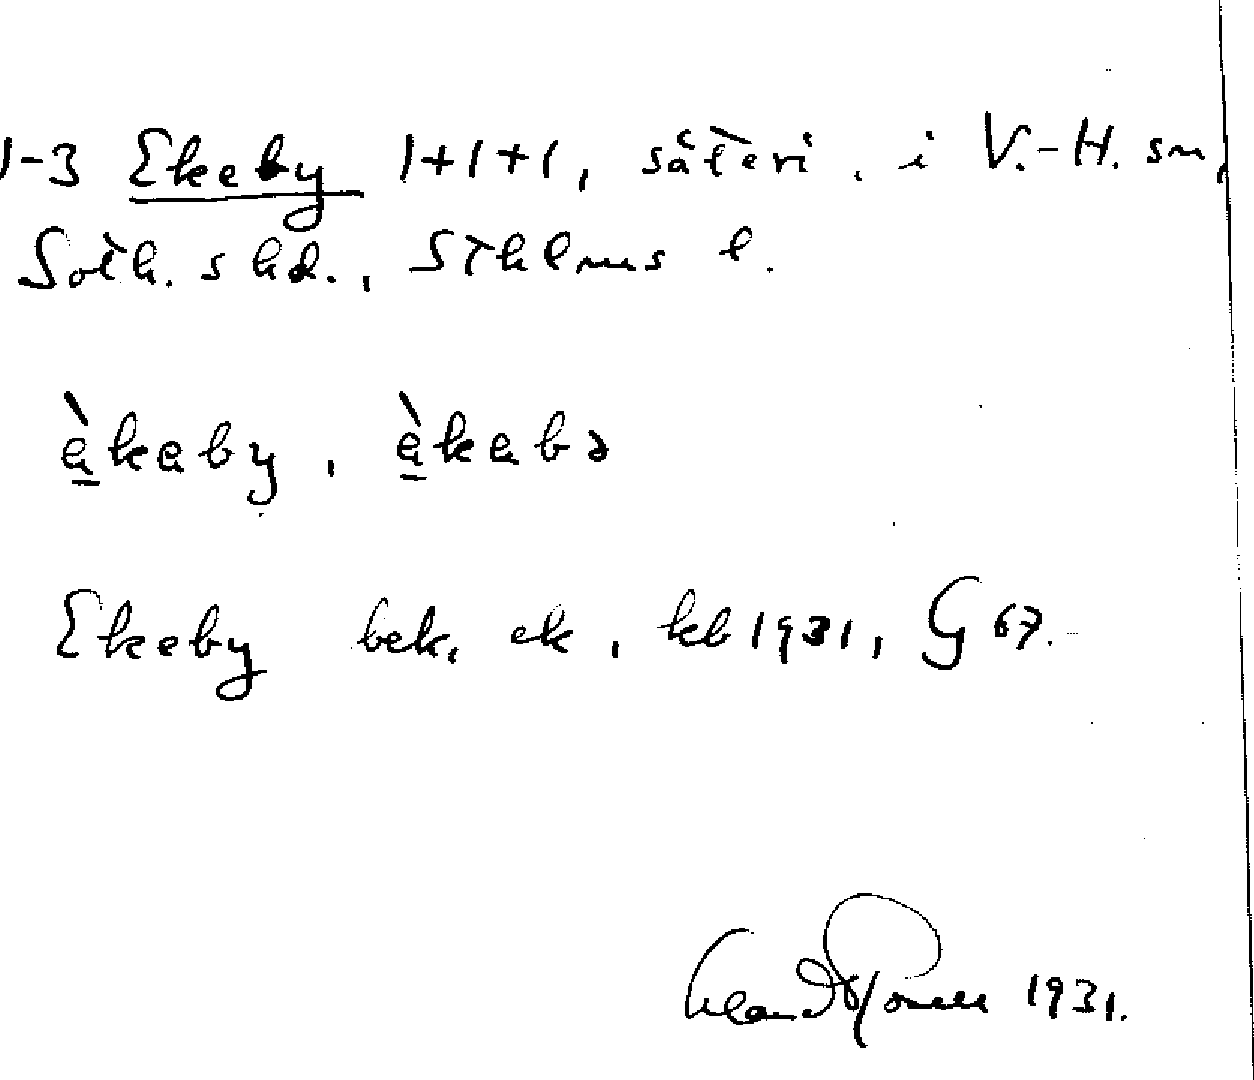 1-3 Ekeby 1+1+1, säteri, i V.-H. sn,
Soth. s hd., Sthlms l.
èkeby, èkebə
Ekeby bek. ek, kb 1931, G 67.
1931.